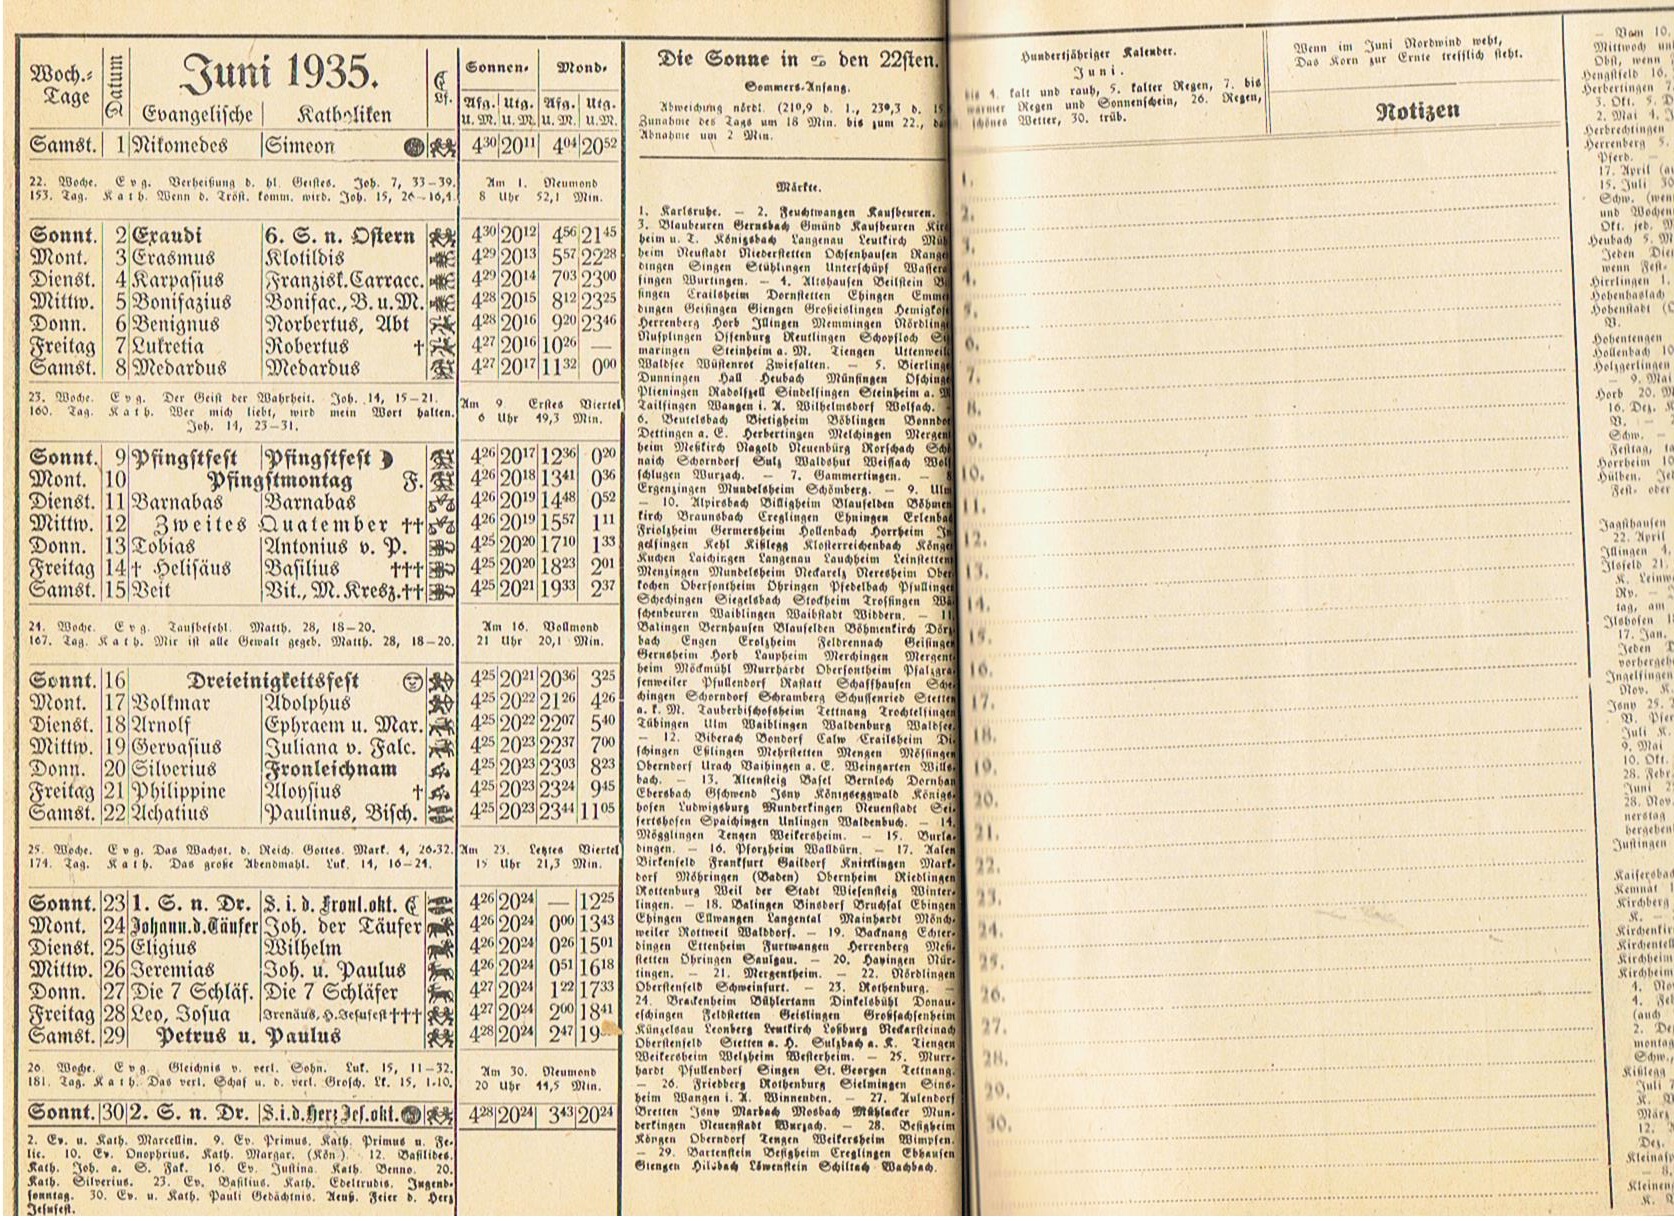 Woch.-Tage
Datum
Juni 1935.
Evangelische Katholiken
Lf.
Sonnen- Mond-
Afg. Utg. Afg. Utg.
U.M. U.M. U.M. U.M.
Samst. 1 Nikomedes Simeon 4 30 20 11 4 04 20 52
22. Woche. Evg. Verheißung d. hl. Geistes. Joh. 7, 33-39.
153. Tag. Kath. Wenn d. Tröst. komm. wird. Joh. 15, 26-16,4.
Am 1. Neumond
8 Uhr 52,1 Min.
Sonnt. 2 Exaudi 6. S. n. Ostern 4 30 20 12 4 56 21 45
Mont. 3 Erasmus Klotildis 4 29 20 13 5 57 22 28
Dienst. 4 Karpasius Franzisk. Carracc. 4 29 20 14 7 03 23 00
Mittw. 5 Bonifazius Bonifac., B. u. M. 4 28 20 15 8 12 23 25
Donn. 6 Benignus Norbertus, Abt 4 28 20 16 9 20 23 46
Freitag 7 Lukretia Robertus † 4 27 20 16 10 26 —
Samst. 8 Medardus Medardus 4 27 20 17 11 32 0 00
23. Woche. Evg. Der Geist der Wahrheit. Joh. 14, 15-21.
160. Tag. Kath. Wer mich liebt, wird mein Wort halten.
Joh. 14, 23-31.
Am 9 Erstes Viertel
6 Uhr 49,3 Min.
Sonnt. 9 Pfingstfest Pfingstfest 4 26 20 17 12 36 0 20
Mont. 10 Pfingstmontag F. 4 26 20 18 13 41 0 36
Dienst. 11 Barnabas Barnabas 4 26 20 19 14 48 0 52
Mittw. 12 Zweites Quatember †† 4 26 20 19 15 57 1 11
Donn. 13 Tobias Antonius v. P. 4 25 20 20 17 10 1 33
Freitag 14 † Helisäus Basilius ††† 4 25 20 20 18 23 2 01
Samst. 15 Veit Vit., M. Kresz. †† 4 25 20 21 19 33 2 37
24. Woche. Evg. Taufbefehl. Matth. 28, 18-20.
167. Tag. Kath. Mir ist alle Gewalt gegeb. Matth. 28, 18-20.
Am 16. Vollmond
21 Uhr 20,1 Min.
Sonnt. 16 Dreieinigkeitsfest 4 25 20 21 20 36 3 25
Mont. 17 Volkmar Adolphus 4 25 20 22 21 26 4 26
Dienst. 18 Arnolf Ephraem u. Mar. 4 25 20 22 22 07 5 40
Mittw. 19 Gervasius Juliana v. Falc. 4 25 20 23 22 37 7 00
Donn. 20 Silverius Fronleichnam 4 25 20 23 23 03 8 23
Freitag 21 Philippine Aloysius † 4 25 20 23 23 24 9 45
Samst. 22 Achatius Paulinus, Bisch. 4 25 20 23 23 44 11 05
25. Woche. Evg. Das Wachst. d. Reich. Gottes. Mark. 4, 26-32.
174. Tag. Kath. Das große Abendmahl. Luk. 14, 16-24.
Am 23. Letztes Viertel
15 Uhr 21,3 Min.
Sonnt. 23 1. S. n. Dr. S. i. d. Fronl.okt. 4 26 20 24 — 12 25
Mont. 24 Johann. d. Täufer Joh. der Täufer 4 26 20 24 0 00 13 43
Dienst. 25 Eligius Wilhelm 4 26 20 24 0 26 15 01
Mittw. 26 Jeremias Joh. u. Paulus 4 26 20 24 0 51 16 18
Donn. 27 Die 7 Schläf. Die 7 Schläfer 4 27 20 24 1 22 17 33
Freitag 28 Leo, Josua Irenäus, H. Jesufest ††† 4 27 20 24 2 00 18 41
Samst. 29 Petrus u. Paulus 4 28 20 24 2 47 19
26. Woche. Evg. Gleichnis v. verl. Sohn. Luk. 15, 11-32.
181. Tag. Kath. Das verl. Schaf u. d. verl. Grosch. Lk. 15, 1-10.
Am 30. Neumond
20 Uhr 44,5 Min.
Sonnt. 30 2. S. n. Dr. S. i. d. Herz Jes. okt. 4 28 20 24 3 43 20 24
2. Ev. u. Kath. Marcellin. 9. Ev. Primus. Kath. Primus u. Fe-
lic. 10. Ev. Onophrius. Kath. Margar. (Kön.) 12. Basilides.
Kath. Joh. a. S. Fak. 16. Ev. Justina. Kath. Benno. 20.
Kath. Silverius. 23. Ev. Basilius. Kath. Edeltrudis. Jugend-
sonntag. 30. Ev. u. Kath. Pauli Gedächtnis. Äuß. Feier d. Herz
Jesufest.
Die Sonne in ♋ den 22sten.
Sommers-Anfang.
Abweichung nördl. (21º,9 d. 1., 23º,3 d. 15
Zunahme des Tags um 18 Min. bis zum 22.,
Abnahme um 2 Min.
Märkte.
1. Karlsruhe. — 2. Feuchtwangen Kaufbeuren.
3. Blaubeuren Gernsbach Gmünd Kaufbeuren
heim u. T. Königsbach Langenau Leutkirch
heim Neustadt Niederstetten Ochsenhausen
dingen Singen Stühlingen Unterschüpf
fingen Wurlingen. — 4. Altshausen Beilstein
singen Crailsheim Dornstetten Ehingen
dingen Geisingen Giengen Großeislingen
Herrenberg Horb Illingen Memmingen
Nusplingen Offenburg Reutlingen Schopfloch
maringen Steinheim a. M. Tiengen
Waldsee Wüstenrot Zwiefalten. — 5.
Dunningen Hall Heubach Münsingen
Plieningen Radolfzell Sindelfingen Steinheim a.
Tailfingen Wangen i. A. Wilhelmsdorf Wolfach.
6. Beutelsbach Bietigheim Böblingen
Dettingen a. E. Herbertingen Melchingen Mergent
heim Meßkirch Nagold Neuenbürg Rorschach
naich Schorndorf Sulz Waldshut Weissach
schlugen Wurzach. — 7. Gammertingen. — 8
Ergenzingen Mundelsheim Schömberg. — 9. Ulm
— 10. Alpirsbach Billigheim Blaufelden
kirch Braunsbach Creglingen Ehningen
Friolzheim Germersheim Hollenbach Horrheim
gelfingen Kehl Kißlegg Klosterreichenbach
Kuchen Laichingen Langenau Lauchheim
Menzingen Mundelsheim Neckarelz Neresheim Ober-
kochen Obersontheim Öhringen Pfedelbach Pfullingen
Schechingen Siegelsbach Stockheim Trossingen
schenbeuren Waiblingen Waibstadt Widdern. — 11.
Balingen Bernhausen Blaufelden Böhmenkirch
bach Engen Erolzheim Feldrennach Geisingen
Gernsheim Horb Laupheim Merchingen Mergent-
heim Möckmühl Murrhardt Obersontheim
fenweiler Pfullendorf Rastatt Schaffhausen
chingen Schorndorf Schramberg Schussenried Stetten
a. k. M. Tauberbischofsheim Tettnang Trochtelfingen
Tübingen Ulm Waiblingen Waldenburg Waldsee.
— 12. Biberach Bondorf Calw Crailsheim
schingen Eßlingen Mehrstetten Mengen Mössingen
Oberndorf Urach Vaihingen a. E. Weingarten
bach. — 13. Altensteig Basel Bernloch Dornhan
Ebersbach Gschwend Isny Königseggwald Königs-
hofen Ludwigsburg Munderkingen Neuenstadt Sei-
fertshofen Spaichingen Unlingen Waldenbuch. — 14.
Mögglingen Tengen Weikersheim. — 15.
dingen. — 16. Pforzheim Walldürn. — 17. Aalen
Birkenfeld Frankfurt Gaildorf Knittlingen Mark-
dorf Möhringen (Baden) Obernheim Riedlingen
Rottenburg Weil der Stadt Wiesensteig Winter-
lingen. — 18. Balingen Binsdorf Bruchsal Ebingen
Ehingen Ellwangen Langental Mainhardt Mönch-
weiler Rottweil Walddorf. — 19. Backnang Echter-
dingen Ettenheim Furtwangen Herrenberg Meß-
stetten Öhringen Saulgau. — 20. Hayingen Nür-
tingen. — 21. Mergentheim. — 22. Nördlingen
Oberstenfeld Schweinfurt. — 23. Rothenburg. —
24. Brackenheim Bühlertann Dinkelsbühl Donau-
eschingen Feldstetten Geislingen Großsachsenheim
Künzelsau Leonberg Leutkirch Loßburg Neckarsteinach
Oberstenfeld Stetten a. H. Sulzbach a. K. Tiengen
Weikersheim Welzheim Westerheim. — 25. Murr-
hardt Pfullendorf Singen St. Georgen Tettnang.
— 26. Friedberg Rothenburg Sielmingen Sins-
heim Wangen i. A. Winnenden. — 27. Aulendorf
Bretten Isny Marbach Mosbach Mühlacker Mun-
derkingen Neuenstadt Wurzach. — 28. Besigheim
Köngen Oberndorf Tengen Weikersheim Wimpfen.
— 29. Bartenstein Besigheim Creglingen Ebhausen
Giengen Hilsbach Löwenstein Schiltach Wachbach.
Hundertjähriger Kalender.
Juni.
bis 4. kalt und rauh, 5. kalter Regen, 7. bis
warmer Regen und Sonnenschein, 26. Regen,
schönes Wetter, 30. trüb.
Wenn im Juni Nordwind weht,
Das Korn zur Ernte trefflich steht.
Notizen
1.
2.
3.
4.
5.
6.
7.
8.
9.
10.
11.
12.
13.
14.
15.
16.
17.
18.
19.
20.
21.
22.
23.
24.
25.
26.
27.
28.
29.
30.
— Vom 10.
Mittwoch
Obst, wenn
Hengstfeld 16.
Herbertingen
3. Okt. 5.
2. Mai 4.
Herbrechtingen
Herrenberg 5.
Pferd. —
17. April
15. Juli
Schw.
und Wochen
Okt. jed.
Heubach 5. M
Jeden
wenn Fest-
Hirrlingen 1.
Hohenhaslach
Hohenstadt
V.
Hohentengen
Hollenbach 10
Holzgerlingen
— 9. Mai
Horb 20. M
16. Dez. K
V. —
Schw. —
Festtag,
Horrheim 10
Hülben.
Fest- oder
Jagsthausen
22. April
Illingen 4.
Ilsfeld 21.
K. Leinw
Rv. —
tag, am
Ilshofen 18
17. Jan.
Jeden
vorhergeh
Ingelfingen
Nov. K.
Isny 25.
V.
Juli K.
9. Mai
10. Okt.
28. Febr.
Juni
28. Nov.
nerstag
hergehen
Justingen
Kaisersbach
Kemnat
Kirchberg
K. —
Kirchenkir
Kirchentell
Kirchheim
Kirchheim
4. Nov
4. Fe
(auch
2. De
montag
Schw.
Kißlegg
Juli 7
K.
März
12.
Dez.
Kleinasp
— 8.
Kleineng
K.